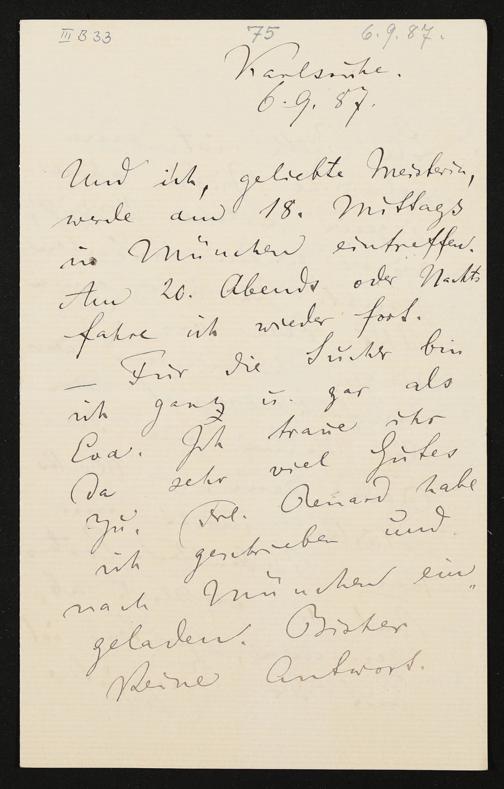 III B 33 75 6.9.87.
Karlsruhe.
6.9.87.
Und ich, geliebte Meisterin,
werde am 18. Mittags
in München eintreffen.
Am 20. Abends oder Nachts
fahre ich wieder fort.
— Für die Sucher bin
ich ganz u. gar als
Eva. Ich traue ihr
da sehr viel Gutes
zu. Frl. Renard habe
ich geschrieben und
nach München ein„
geladen. Bisher
keine Antwort.